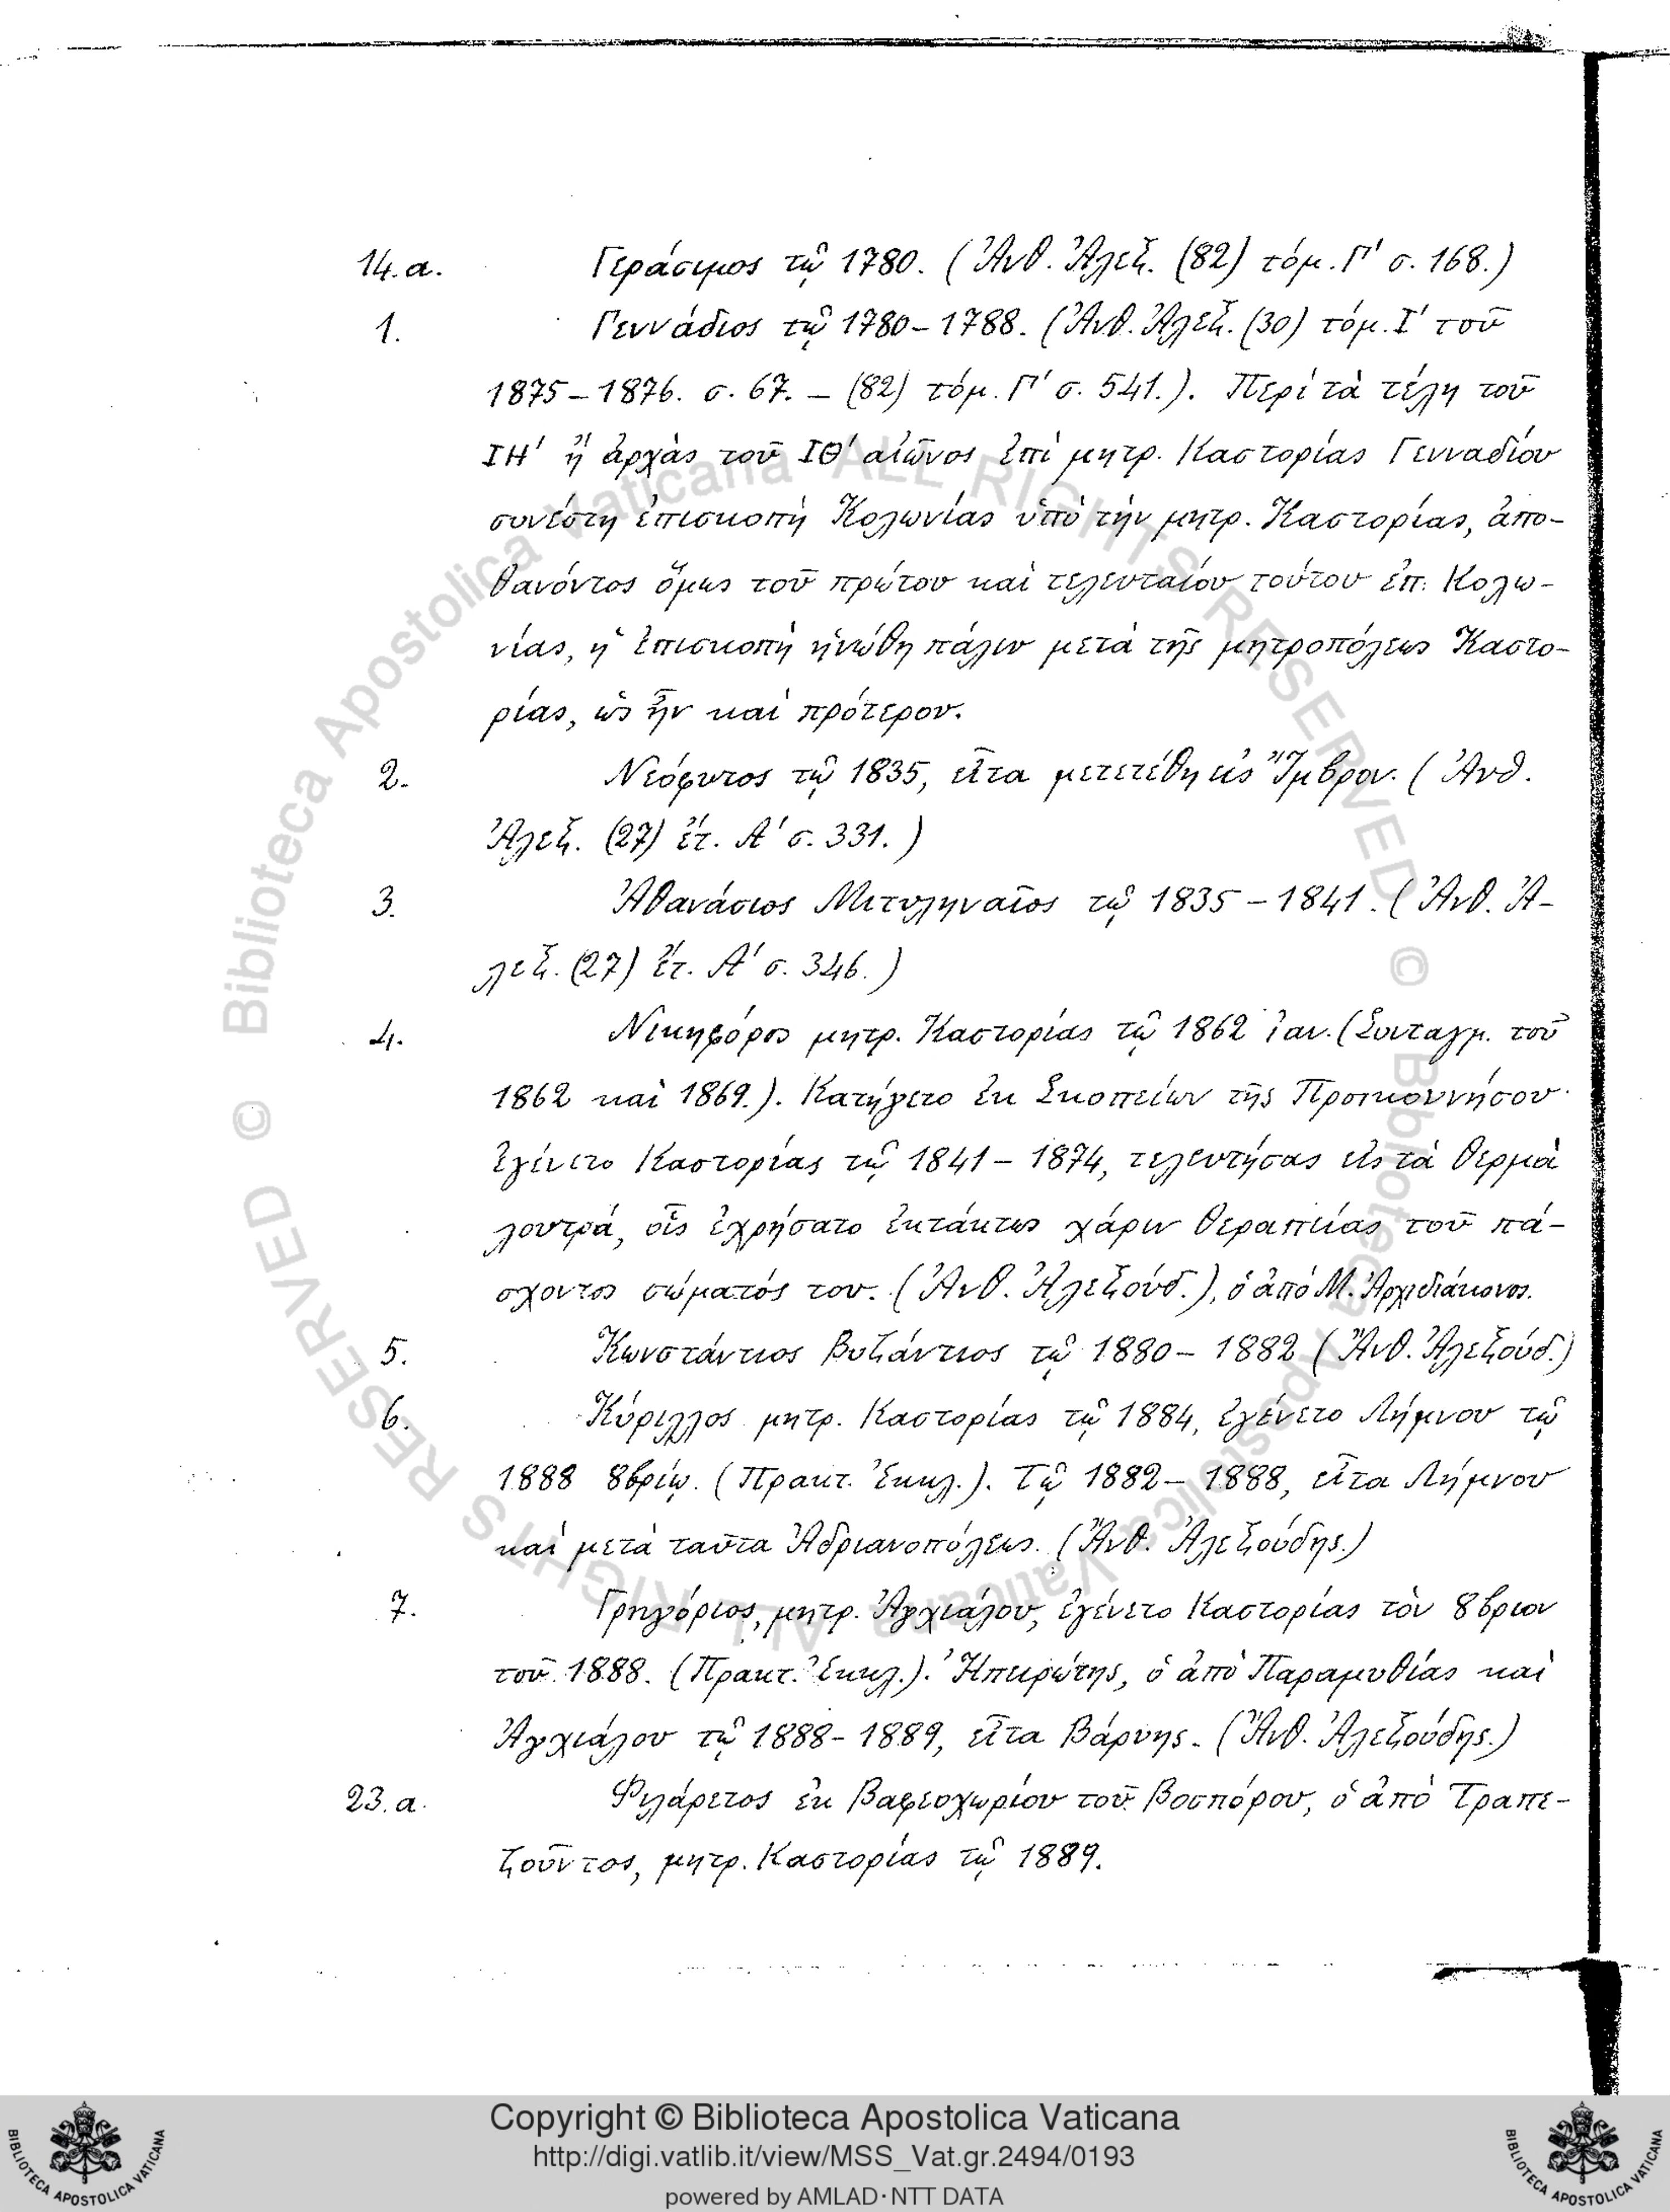 14.α. Γεράσιμος τῷ 1780. (Ἀνθ. Ἀλεξ. (82) τόμ. Γ' σ. 168.)
1. Γεννάδιος τῷ 1780-1788. (Ἀνθ. Ἀλεξ. (30) τόμ. Ι' τοῦ
1875-1876. σ. 67. - (82) τόμ. Γ' σ. 541.). Περὶ τὰ τέλη τοῦ
ΙΗ' ἢ ἀρχὰς τοῦ ΙΘ' αἰῶνος ἐπὶ μητρ. Καστορίας Γενναδίου
συνέστη ἐπισκοπὴ Κολωνίας ὑπὸ τὴν μητρ. Καστορίας, ἀπο-
θανόντος ὅμως τοῦ πρώτου καὶ τελευταίου τούτου ἐπ. Κολω-
νίας, ἡ ἐπισκοπὴ ἡνώθη πάλιν μετὰ τῆς μητροπόλεως Καστο-
ρίας, ὡς ἦν καὶ πρότερον.
2. Νεόφυτος τῷ 1835, εἶτα μετετέθη εἰς Ἴμβρον. (Ἀνθ.
Ἀλεξ. (27) ἔτ. Α' σ. 331.)
3. Ἀθανάσιος Μιτυληναῖος τῷ 1835-1841. (Ἀνθ. Ἀ-
λεξ. (27) ἔτ. Α' σ. 346.)
4. Νικηφόρος μητρ. Καστορίας τῷ 1862 Ἰαν. (Συνταγμ. τοῦ
1862 καὶ 1869.). Κατήγετο ἐκ Σκοπείων τῆς Προικοννήσου·
ἐγένετο Καστορίας τῷ 1841-1874, τελευτήσας εἰς τὰ θερμὰ
λουτρά, οἷς ἐχρήσατο ἐκτάκτως χάριν θεραπείας τοῦ πά-
σχοντος σώματός του. (Ἀνθ. Ἀλεξούδ.), ὁ ἀπὸ Μ. Ἀρχιδιάκονος.
5. Κωνστάντιος Βυζάντιος τῷ 1880-1882 (Ἄνθ. Ἀλεξούδ.)
6. Κύριλλος μητρ. Καστορίας τῷ 1884, ἐγένετο Λήμνου τῷ
1888 8βρίῳ. (Πρακτ. Ἐκκλ.). Τῷ 1882-1888, εἶτα Λήμνου
καὶ μετὰ ταῦτα Ἀδριανοπόλεως. (Ἄνθ. Ἀλεξούδης.)
7. Γρηγόριος, μητρ. Ἀγχιάλου, ἐγένετο Καστορίας τὸν 8βριον
τοῦ 1888. (Πρακτ. Ἐκκλ.). Ἠπειρώτης, ὁ ἀπὸ Παραμυθίας καὶ
Ἀγχιάλου τῷ 1888-1889, εἶτα Βάρνης. (Ἄνθ. Ἀλεξούδης.)
23.α. Φιλάρετος ἐκ Βαφεοχωρίου τοῦ Βοσπόρου, ὁ ἀπὸ Τραπε-
ζοῦντος, μητρ. Καστορίας τῷ 1889.
© Biblioteca Apostolica Vaticana ALL RIGHTS RESERVED
© Biblioteca Apostolica Vaticana ALL RIGHTS RESERVED
Copyright © Biblioteca Apostolica Vaticana
http://digi.vatlib.it/view/MSS_Vat.gr.2494/0193
powered by AMLAD·NTT DATA
BIBLIOTECA APOSTOLICA VATICANA
BIBLIOTECA APOSTOLICA VATICANA